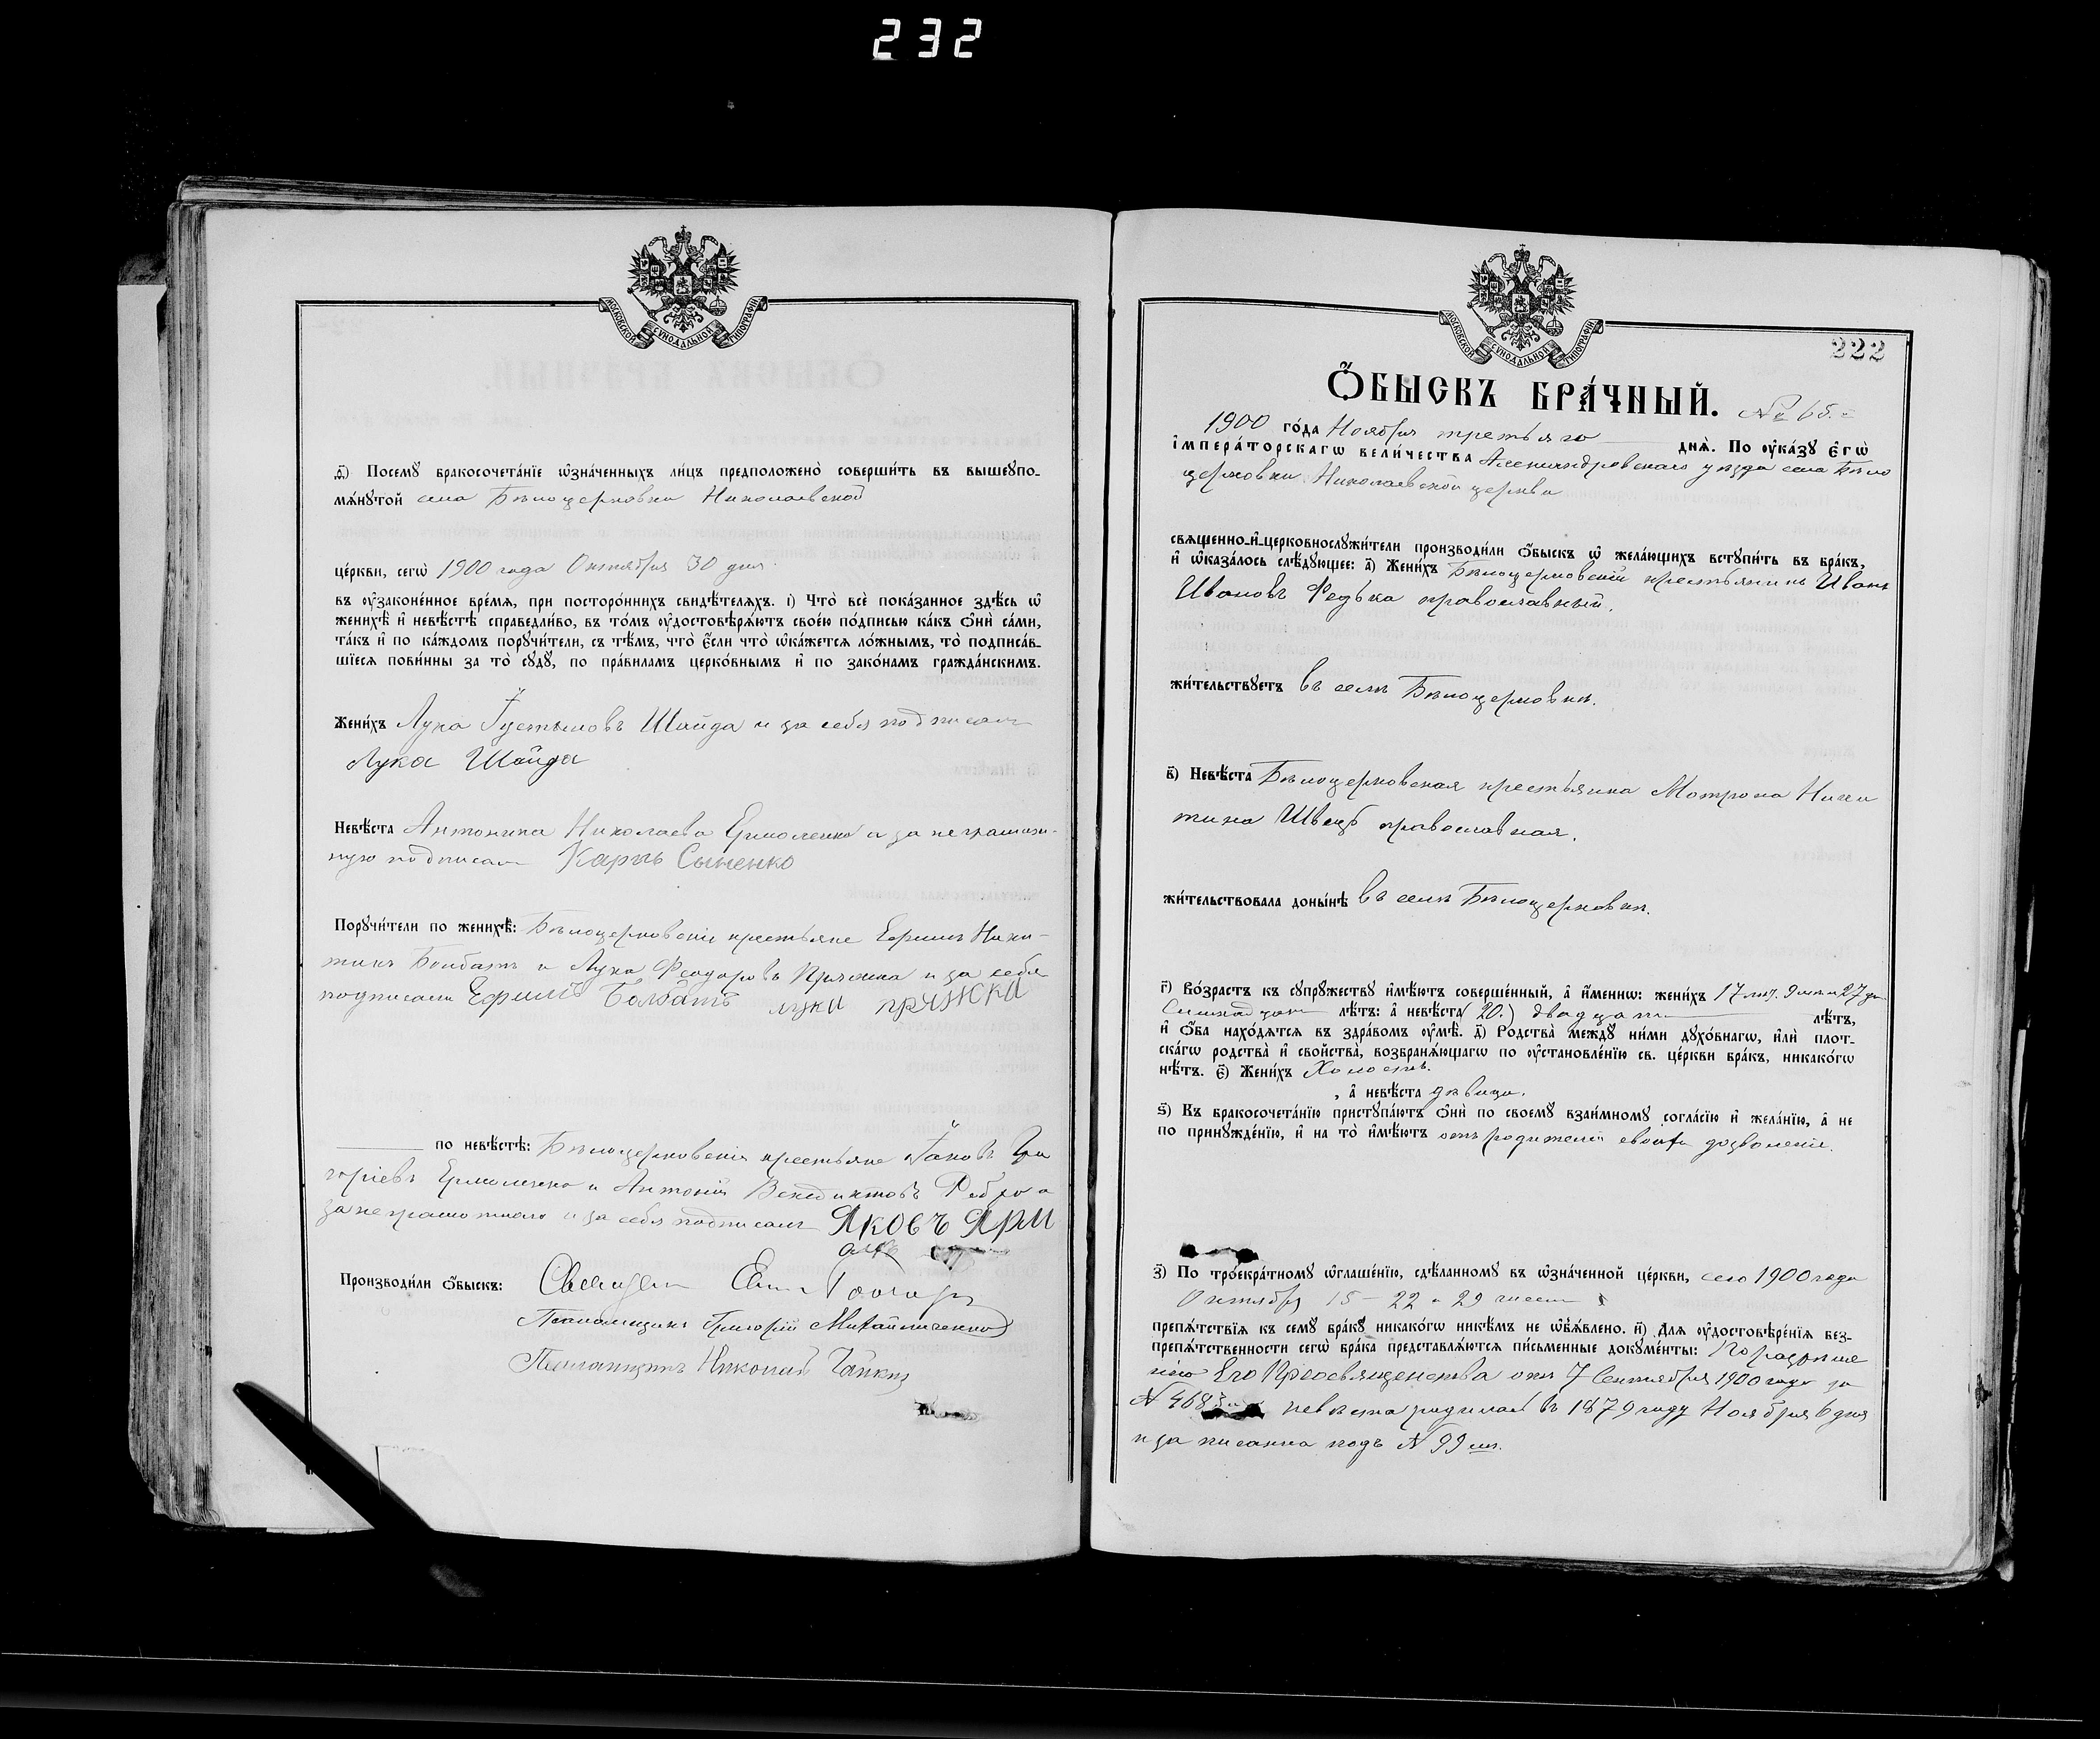 232
МОСКОВСКОЙ СУНОДАЛЬНОЙ ТИПОГРАФІИ
ѳ҃) Посемꙋ̀ бракосочета́нїе ѡ҆зна́ченныхъ ли́цъ предположено̀ соверши́ть въ вышеꙋпо-
мѧ́нꙋтой села Бѣлоцерковки Николаевской
це́ркви, сегѡ̀ 1900 года Октября 30 дня.
въ ᲂу҆зако́нённое вре́мѧ, при посторо́ннихъ свидѣ́телѧхъ. і) Что̀ всѐ пока́занное здѣ́сь ѡ҆
женихѣ̀ и҆ невѣ́стѣ справедли́во, въ то́мъ ᲂу҆достовѣрѧ́ютъ свое́ю по́дписью ка́къ ѻ҆нѝ са́ми,
та́къ и҆ по ка́ждомъ порꙋчи́тели, съ тѣ́мъ, что̀ є҆́сли что̀ ѡ҆ка́жетсѧ ло́жнымъ, то̀ подписа́в-
шїесѧ пови́нны за то̀ сꙋдꙋ̀, по пра́виламъ церко́внымъ и҆ по зако́намъ гражда́нскимъ.
Жени́хъ Лука Іустиновъ Шайда и за себя подписалъ
Лука Шайда
Невѣ́ста Антонина Николаева Ермоленко а за неграмот-
ную подписалъ Карпъ Сыненко
Порꙋчи́тели по женихѣ̀: Бѣлоцерковскіе крестьяне Ефимъ Ники-
тинъ Балбатъ и Лука Феодоровъ Пряжка и за себя
подписали Ефимъ Балбатъ луки пряжка
по невѣ́стѣ: Бѣлоцерковскія крестьяне Іаковъ Гри
горіевъ Ермоленко и Антоній Венедиктовъ Ребро а
за неграмотнаго и за себя подписалъ Яковъ Ярм
Производи́ли ѻ҆́быскъ: Священ
Псаломщикъ Григорій Михайличенко
Псаломщикъ Николай Чайкин
МОСКОВСКОЙ СУНОДАЛЬНОЙ ТИПОГРАФІИ
222
Ѻ҆́быскъ бра́чный. № 65.
1900 го́да Ноября третьяго днѧ̀. По ᲂу҆ка́зꙋ Є҆гѡ̀
і҆мпера́торскагѡ вели́чества Александровскаго уѣзда села Бѣло
церковки Николаевской церкви
свѧще́нно-и҆-церковнослꙋжи́тели производи́ли ѻ҆́быскъ ѡ҆ жела́ющихъ встꙋпи́ть въ бра́къ,
и҆ ѡ҆каза́лось слѣ́дꙋющее: а҃) Жени́хъ Бѣлоцерковскій крестьянинъ Иванъ
Ивановъ Федька православный.
жи́тельствꙋетъ въ селѣ Бѣлоцерковкѣ.
в҃) Невѣ́ста Бѣлоцерковская крестьянка Мотрона Ники
тина Швецъ православная.
жи́тельствовала доны́нѣ въ селѣ Бѣлоцерковкѣ.
г҃) Во́зрастъ къ сꙋпрꙋ́жествꙋ и҆мѣ́ютъ соверше́нный, а҆ и҆́меннѡ: жени́хъ 17 лѣт. 9 мѣс. и 27 дн.
Семнадцать лѣ́тъ: а҆ невѣ́ста (20.) двадцать лѣ́тъ,
и҆ ѻ҆́ба нахо́дѧтсѧ въ здра́вомъ ᲂу҆мѣ̀. д҃) Родства̀ междꙋ̀ ни́ми дꙋхо́внагѡ, и҆лѝ плот-
ска́гѡ родства̀ и҆ свойства̀, возбранѧ́ющагѡ по ᲂу҆становле́нїю св. це́ркви бра́къ, никако́гѡ
нѣ́тъ. є҃) Жени́хъ Холостъ.
, а҆ невѣ́ста дѣвица.
ѕ҃) Къ бракосочета́нїю пристꙋпа́ютъ ѻ҆нѝ по своемꙋ̀ взаи́мномꙋ согла́сїю и҆ жела́нїю, а҆ не
по принꙋжде́нїю, и҆ на то̀ и҆мѣ́ютъ отъ родителей своихъ дозволеніе.
з҃) По трое́кратномꙋ ѡ҆глаше́нїю, сдѣ́ланномꙋ въ ѡ҆зна́ченной це́ркви, сего 1900 года
Октября 15 - 22 и 29 чиселъ
препѧ́тствїѧ къ семꙋ̀ бра́кꙋ никако́гѡ никѣ́мъ не ѡ҆б̾ѧ́влено. и҃) Длѧ ᲂу҆достовѣре́нїѧ без-
препѧ́тственности сегѡ̀ бра́ка представлѧ́ютсѧ пи́сьменные докꙋме́нты: По разрѣше
нію Его Преосвященства отъ 7 Сентября 1900 года за
№ 4683 невѣста родилась въ 1879 году Ноября 6 дня
и записанна подъ № 99 шт.